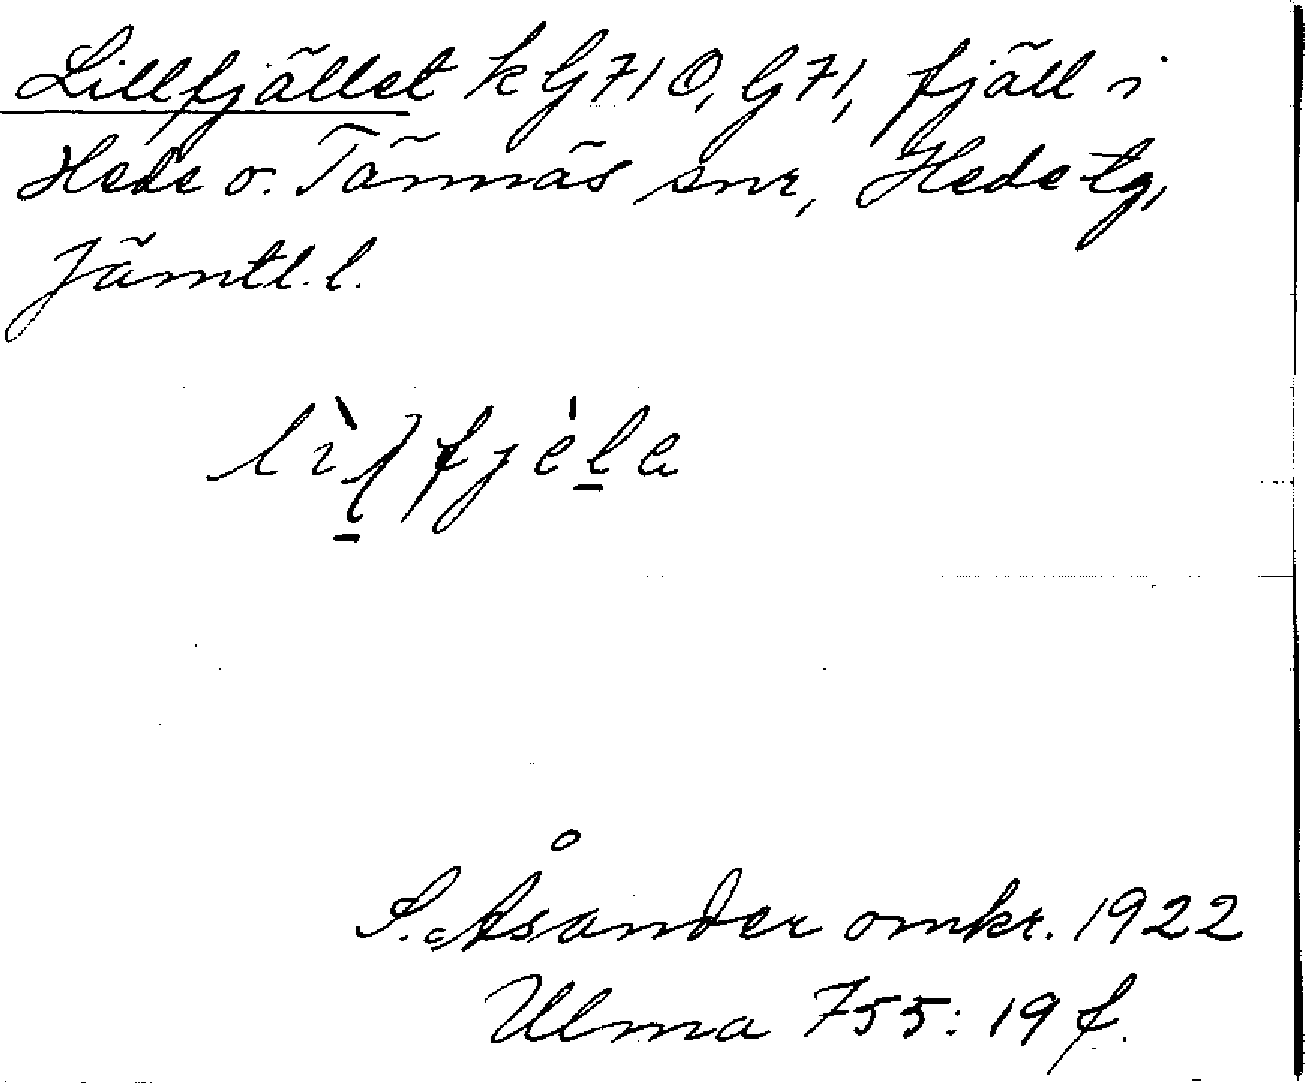 Lillfjället k G710, G71, fjäll i
Hede o. Tännäs snr, Hede tg,
Jämtl. l.
S. Åsander omkr. 1922
Ulma 755: 19 f.